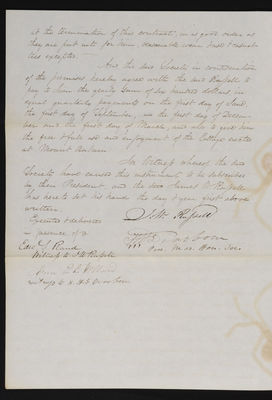 at the termination of this contract, in as good order as
they are put into for him, reasonable wear & use & casual-
ties excepted.
And the said Society in consideration
of the premises, hereby agree with the said Russell to
pay to him the yearly Sum of Six hundred dollars, in
equal quarterly payments on the first day of June,
the first day of September, on the first day of Decem-
ber and the first day of March, and also to give him
the free & full use and enjoyment of the Cottage erected
at Mount Auburn
In Witness whereof, the said
Society have caused this instrument to be subscribed
by their President, and the said James W. Russell
has hereto set his hand the day & year first above
written.
Executed & delivered
in presence of
J. W. Russell
Edw. S. Rand
Witness to J. W. Russell
Pres. Mass. Hor. Soc.